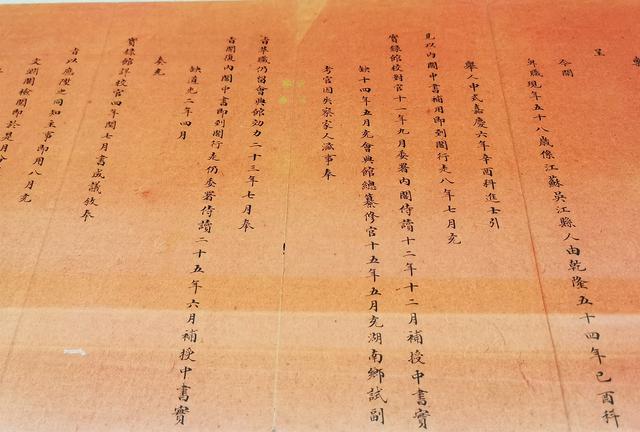 呈
今開
卑職現年五十八歲係江蘇吳江縣人由乾隆五十四年己酉科
舉人中式嘉慶六年辛酉科進士引
見以內閣中書補用即到閣行走八年七月充
實錄館校對官十一年九月委署內閣侍讀十二年十二月補授中書實
缺十四年五月充會典館總纂修官十五年五月充湖南鄉試副
考官因失察家人滋事奉
旨革職仍留會典館効力二十三年七月奉
旨開復內閣中書即到閣行走仍委署侍讀二十五年六月補授中書實
缺道光二年四月
奏充
實錄館詳校官四年閏七月書成議敘奉
旨以應陞之同知主事即用八月充
文淵閣檢閱即於是月分